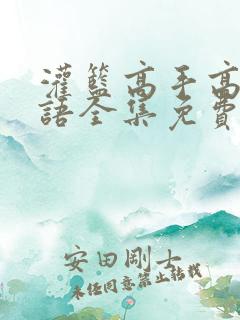 灌籃高手高
語全集免費
安田剛士
未經同意禁止轉載